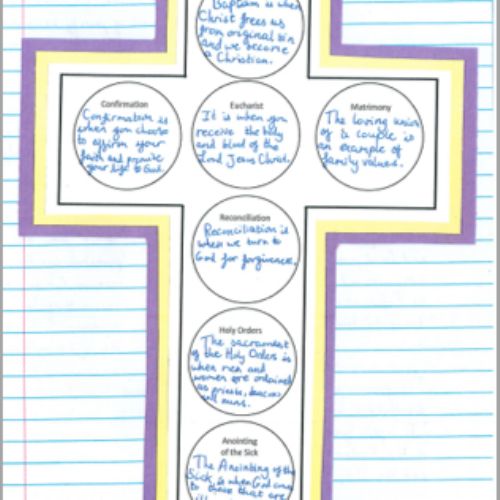 Baptism is when
Christ frees us
from original sin
and we become
a Christian.
Confirmation
Confirmation is
when you choose
to affirm your
faith and promise
your life to God.
Eucharist
It is when you
receive the body
and blood of the
Lord Jesus Christ.
Matrimony
The loving union
of a couple is
an example of
family values.
Reconciliation
Reconciliation is
when we turn to
God for forgiveness.
Holy Orders
The sacrament
of the Holy Orders is
when men and
women are ordained
as priests, deacons
and nuns.
Anointing
of the Sick
The Anointing of the
Sick is when God comes
to those that are